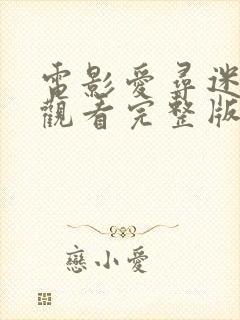 電影愛尋迷
觀看完整版
戀小愛